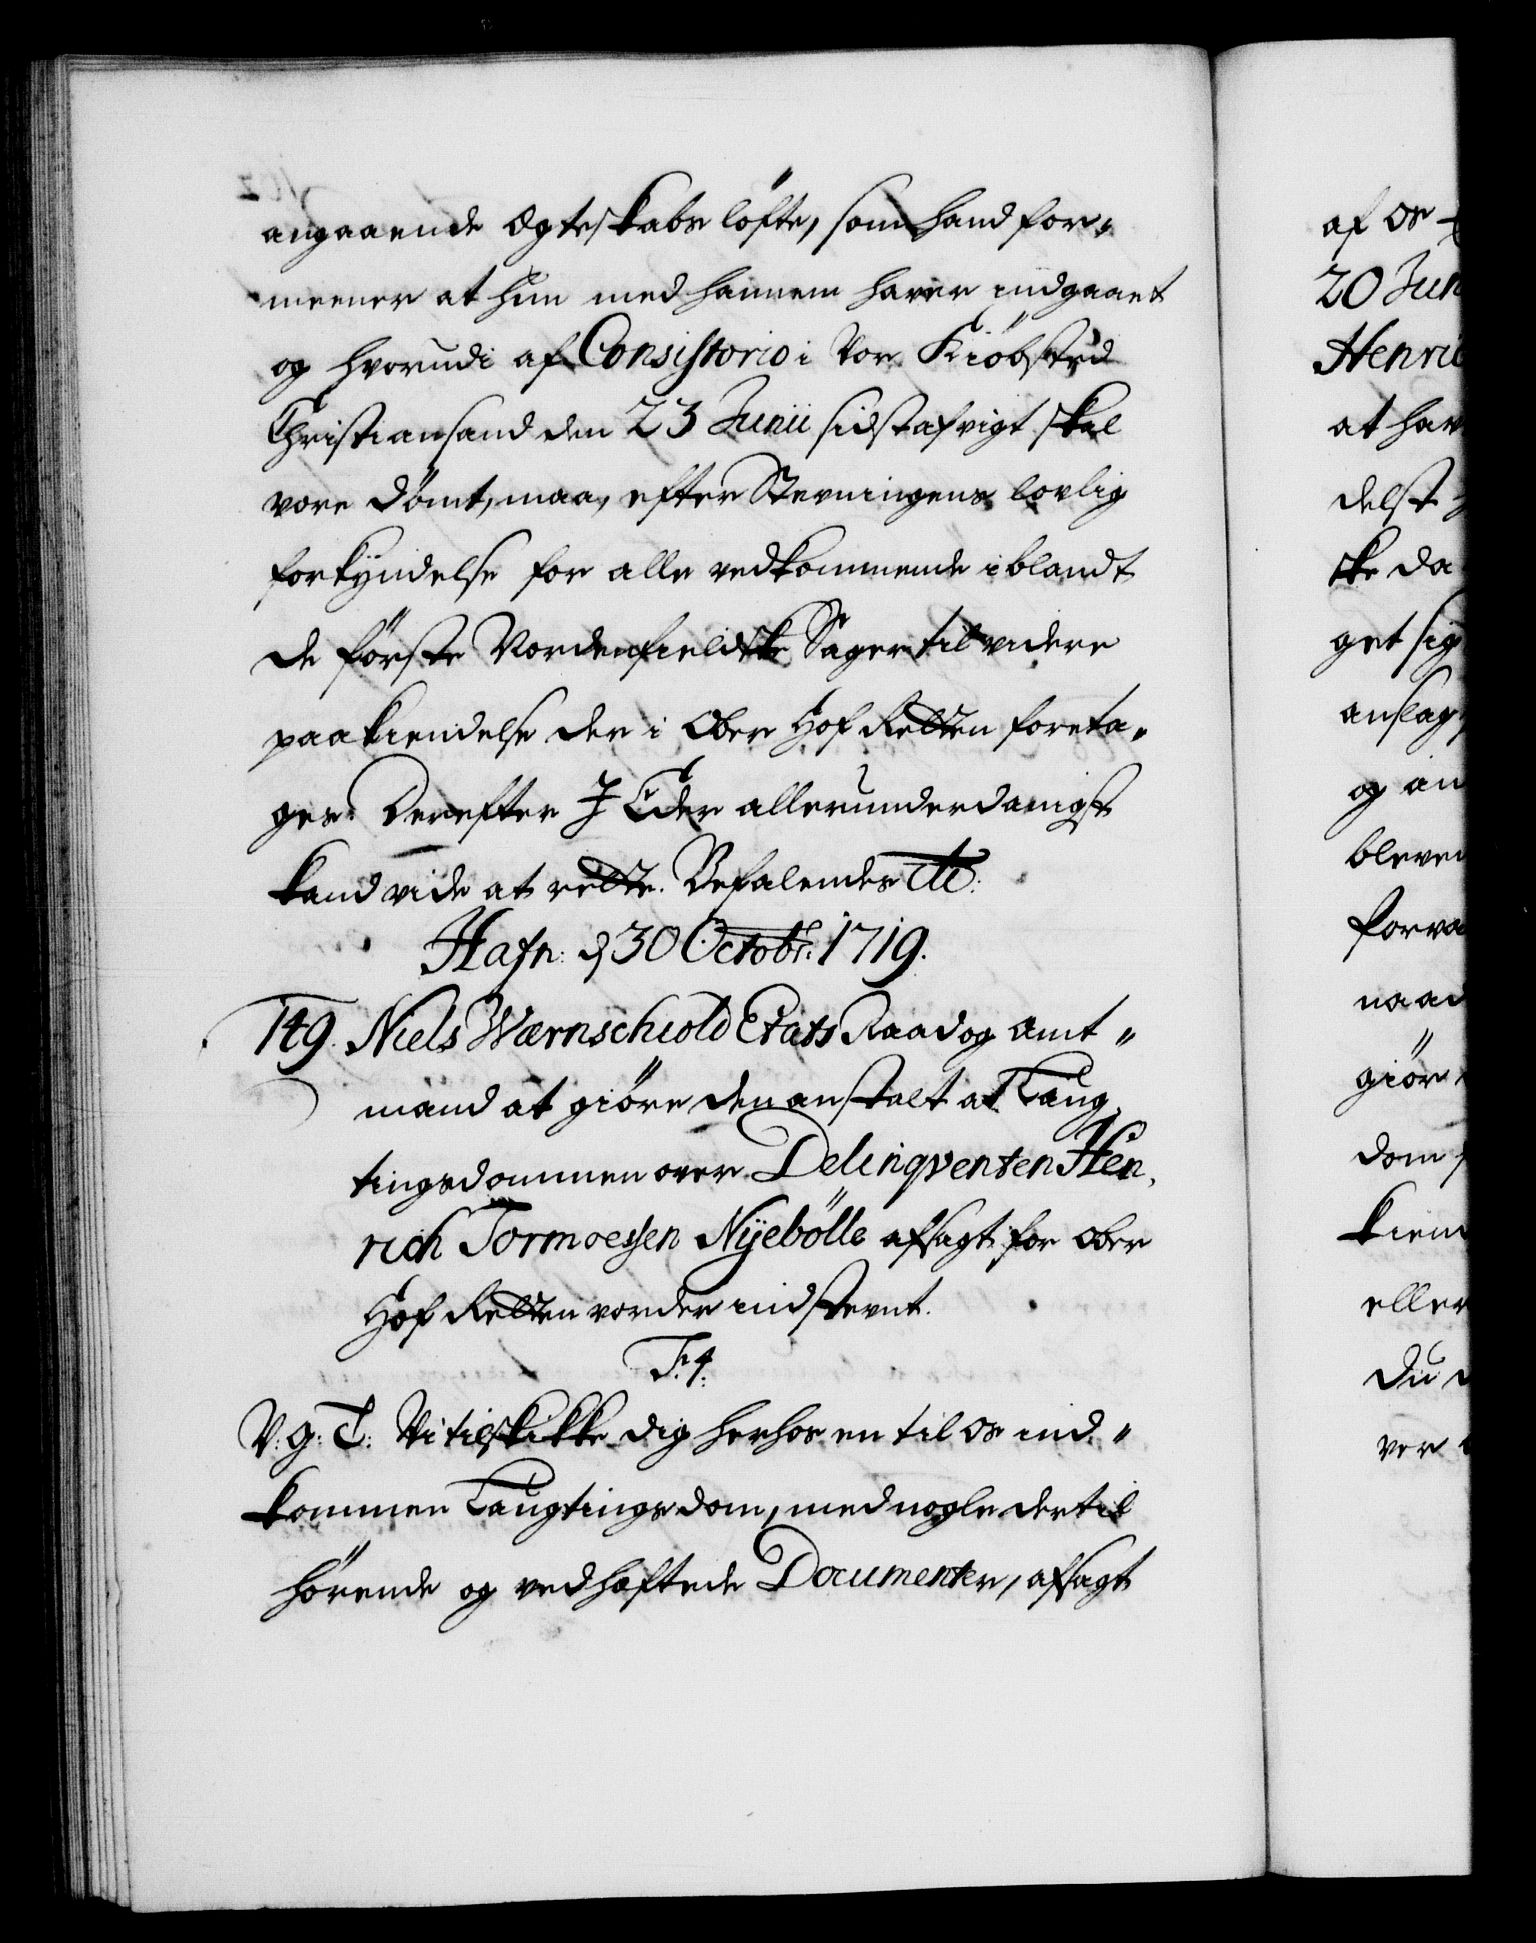 angaaende Ægteskabs löfte, som hand for„
meener at hun med hannem haver indgaaet
og hvorudi af Consistorio i Vor Kiöbsted
Christiansand den 23 Junii sidst afvigt skal
vere dömt, maa, efter Stevningens lovlig
forkyndelse for alle vedkommende iblandt
de förste Nordenfieldske Sager til videre
paakiendelse der i Ober Hof Retten foreta„
ges. Derefter I Eder allerunderdanigst
kand vide at rette. Befalendes etc:
Hafn: d 30 Octobr: 1719.
149. Niels Wærnschiold Etats Raad og Amt„
mand at giöre den anstalt at Laug„
tingsdommen over Delinqventen Hen„
rich Tormoessen Nÿebölle afsagt for Ober
Hof Retten vorder indstevnt.
F: 4:
V: g: T: Vi tilskikke dig herhos en til os ind„
kommen Laugtings dom, med nogle dertil
hörende og vedhæftede Documenter, afsagt
af os
20 Jun
Henric
at hav
delst
ske da
get sig
anslag
og an
bleven
forva
naad
giör
dom
kiend
eller
du
ver